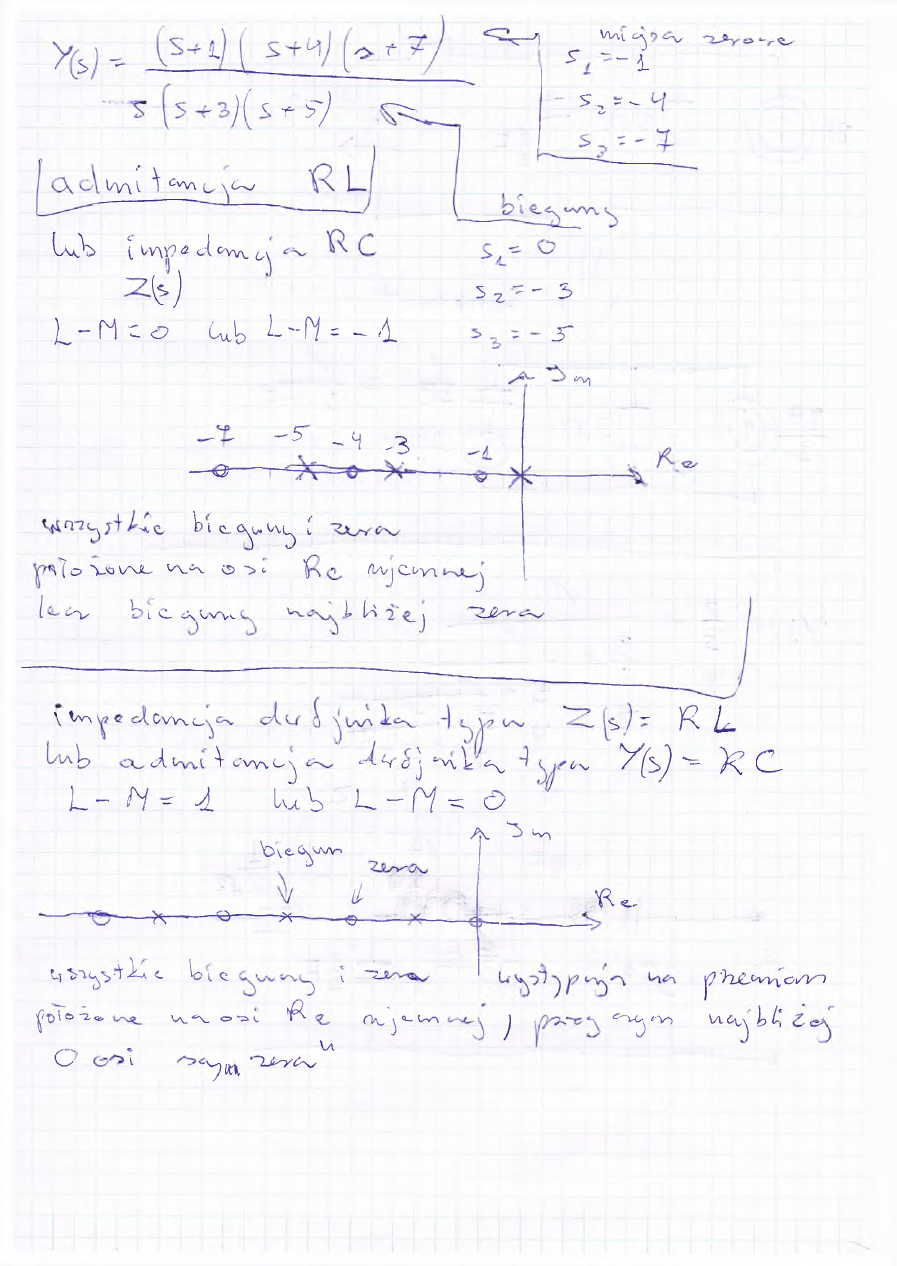 Y(s) = (s+1)(s+4)(s+7) / s(s+3)(s+5)
miejsca zerowe
s₁=-1
s₂=-4
s₃=-7
admitancja RL
lub impedancja RC
Z(s)
L-M=0 lub L-M=-1
bieguny
s₁=0
s₂=-3
s₃=-5
Im
-7 -5 -4 -3 -1
Re
wszystkie bieguny i zera
położone na osi Re ujemnej
lecz bieguny najbliżej zera
impedancja dwójnika typu Z(s)= RL
lub admitancja dwójnika typu Y(s)=RC
L-M=1 lub L-M=0
Im
biegun zera
Re
wszystkie bieguny i zera występują na przemian
położone na osi Re ujemnej, przy czym najbliżej
0 osi są zera"